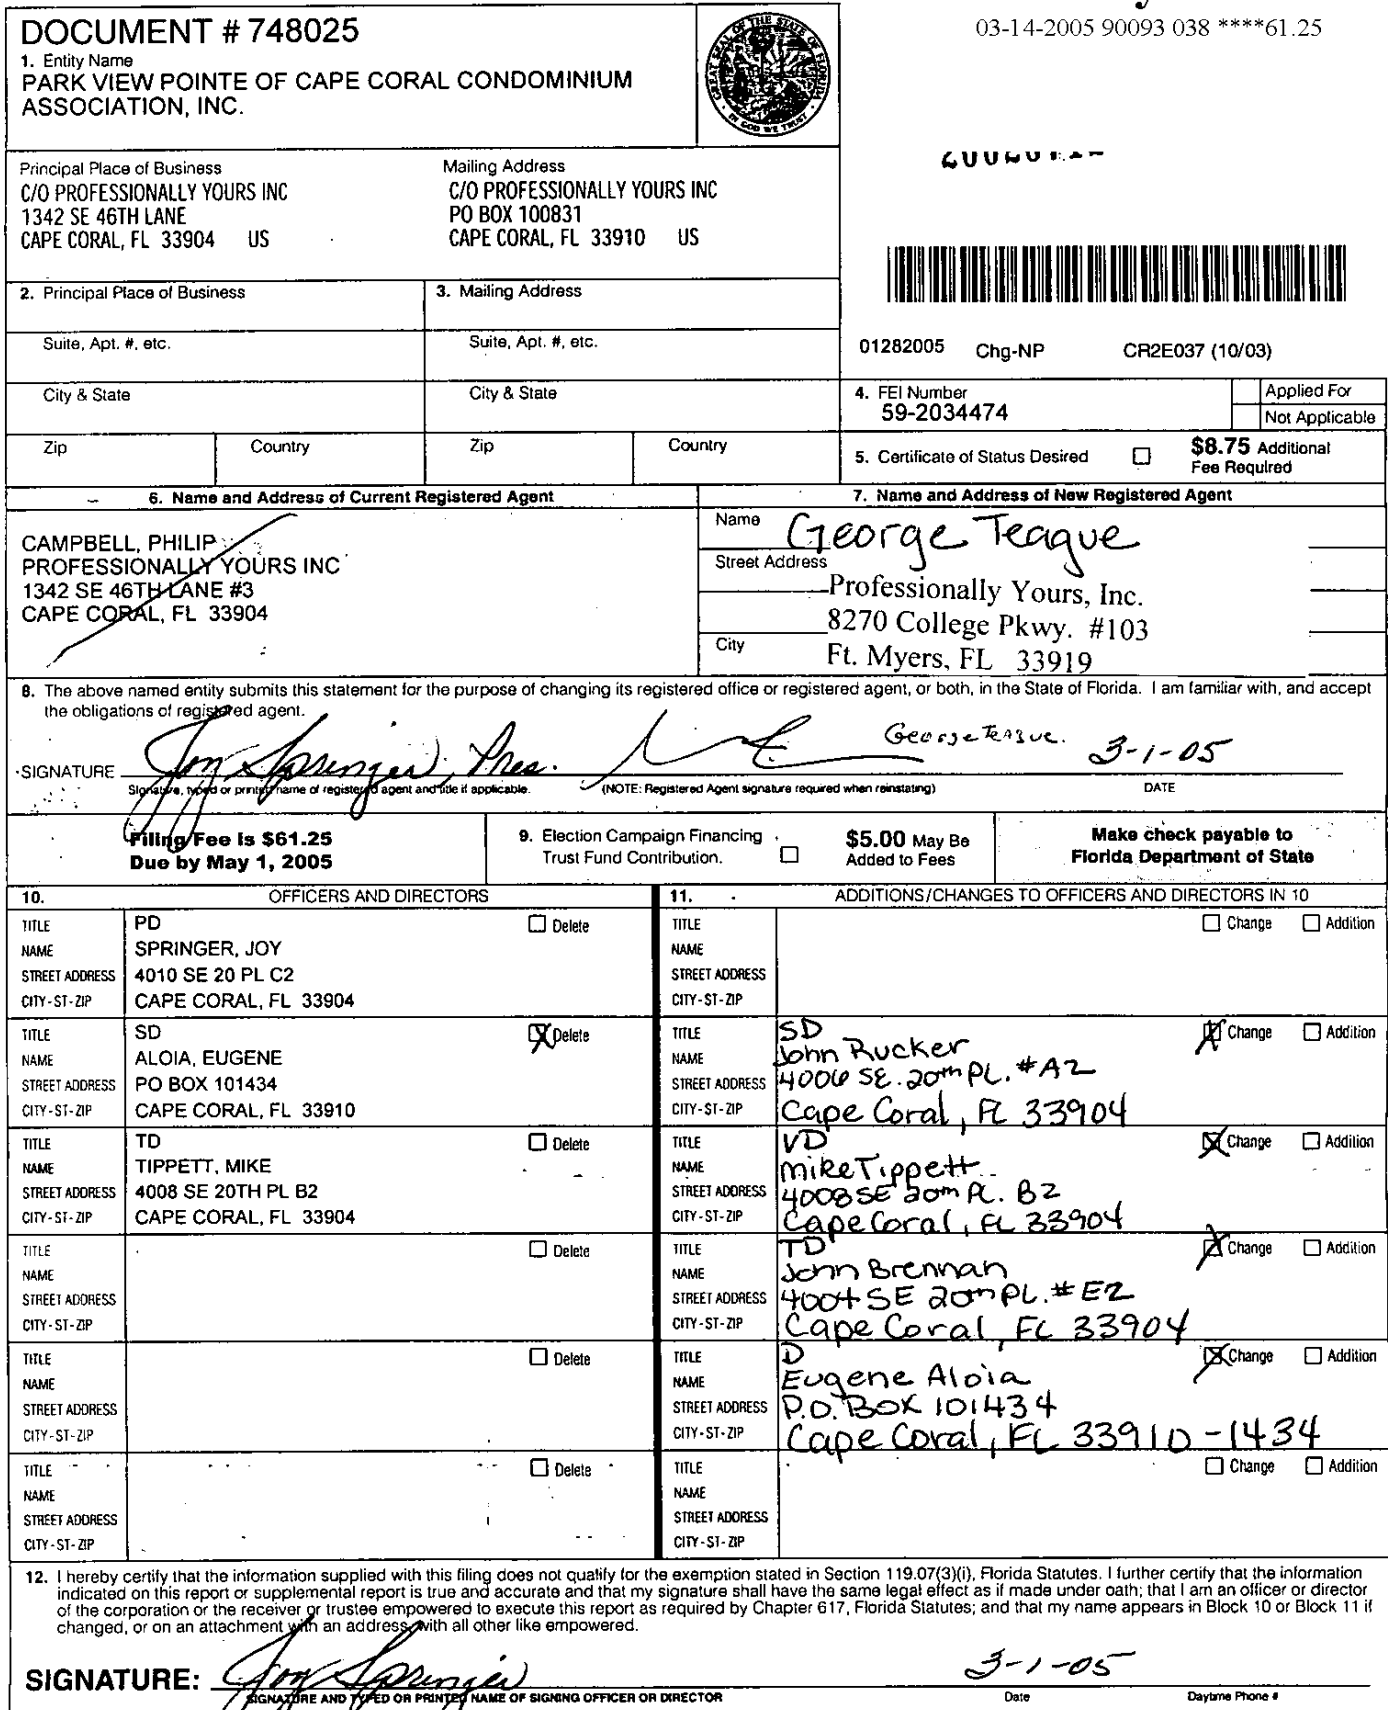 DOCUMENT # 748025
1. Entity Name
PARK VIEW POINTE OF CAPE CORAL CONDOMINIUM
ASSOCIATION, INC.
GREAT SEAL OF THE STATE OF FLORIDA
IN GOD WE TRUST
03-14-2005 90093 038 ****61.25
Principal Place of Business
C/O PROFESSIONALLY YOURS INC
1342 SE 46TH LANE
CAPE CORAL, FL 33904 US
Mailing Address
C/O PROFESSIONALLY YOURS INC
PO BOX 100831
CAPE CORAL, FL 33910 US
2. Principal Place of Business
3. Mailing Address
Suite, Apt. #, etc.
Suite, Apt. #, etc.
01282005 Chg-NP CR2E037 (10/03)
City & State
City & State
4. FEI Number
59-2034474
Applied For
Not Applicable
Zip
Country
Zip
Country
5. Certificate of Status Desired
$8.75 Additional
Fee Required
6. Name and Address of Current Registered Agent
CAMPBELL, PHILIP
PROFESSIONALLY YOURS INC
1342 SE 46TH LANE #3
CAPE CORAL, FL 33904
7. Name and Address of New Registered Agent
Name George Teague
Street Address
Professionally Yours, Inc.
8270 College Pkwy. #103
City Ft. Myers, FL 33919
8. The above named entity submits this statement for the purpose of changing its registered office or registered agent, or both, in the State of Florida. I am familiar with, and accept
the obligations of registered agent.
SIGNATURE Joy Springer, Pres. George Teague. 3-1-05
Signature, typed or printed name of registered agent and title if applicable. (NOTE: Registered Agent signature required when reinstating) DATE
Filing Fee is $61.25
Due by May 1, 2005
9. Election Campaign Financing
Trust Fund Contribution.
$5.00 May Be
Added to Fees
Make check payable to
Florida Department of State
10. OFFICERS AND DIRECTORS
11. ADDITIONS/CHANGES TO OFFICERS AND DIRECTORS IN 10
TITLE PD Delete
NAME SPRINGER, JOY
STREET ADDRESS 4010 SE 20 PL C2
CITY-ST-ZIP CAPE CORAL, FL 33904
TITLE Change Addition
NAME
STREET ADDRESS
CITY-ST-ZIP
TITLE SD X Delete
NAME ALOIA, EUGENE
STREET ADDRESS PO BOX 101434
CITY-ST-ZIP CAPE CORAL, FL 33910
TITLE SD X Change Addition
NAME John Rucker
STREET ADDRESS 4006 SE. 20th PL. #A2
CITY-ST-ZIP Cape Coral, FL 33904
TITLE TD Delete
NAME TIPPETT, MIKE
STREET ADDRESS 4008 SE 20TH PL B2
CITY-ST-ZIP CAPE CORAL, FL 33904
TITLE VD X Change Addition
NAME Mike Tippett
STREET ADDRESS 4008 SE 20th PL. B2
CITY-ST-ZIP Cape Coral, FL 33904
TITLE Delete
NAME
STREET ADDRESS
CITY-ST-ZIP
TITLE TD X Change Addition
NAME John Brennan
STREET ADDRESS 4004 SE 20th PL. #E2
CITY-ST-ZIP Cape Coral, FL 33904
TITLE Delete
NAME
STREET ADDRESS
CITY-ST-ZIP
TITLE D X Change Addition
NAME Eugene Aloia
STREET ADDRESS P.O. Box 101434
CITY-ST-ZIP Cape Coral, FL 33910-1434
TITLE Delete
NAME
STREET ADDRESS
CITY-ST-ZIP
TITLE Change Addition
NAME
STREET ADDRESS
CITY-ST-ZIP
12. I hereby certify that the information supplied with this filing does not qualify for the exemption stated in Section 119.07(3)(i), Florida Statutes. I further certify that the information
indicated on this report or supplemental report is true and accurate and that my signature shall have the same legal effect as if made under oath; that I am an officer or director
of the corporation or the receiver or trustee empowered to execute this report as required by Chapter 617, Florida Statutes; and that my name appears in Block 10 or Block 11 if
changed, or on an attachment with an address, with all other like empowered.
SIGNATURE: Joy Springer 3-1-05
SIGNATURE AND TYPED OR PRINTED NAME OF SIGNING OFFICER OR DIRECTOR Date Daytime Phone #